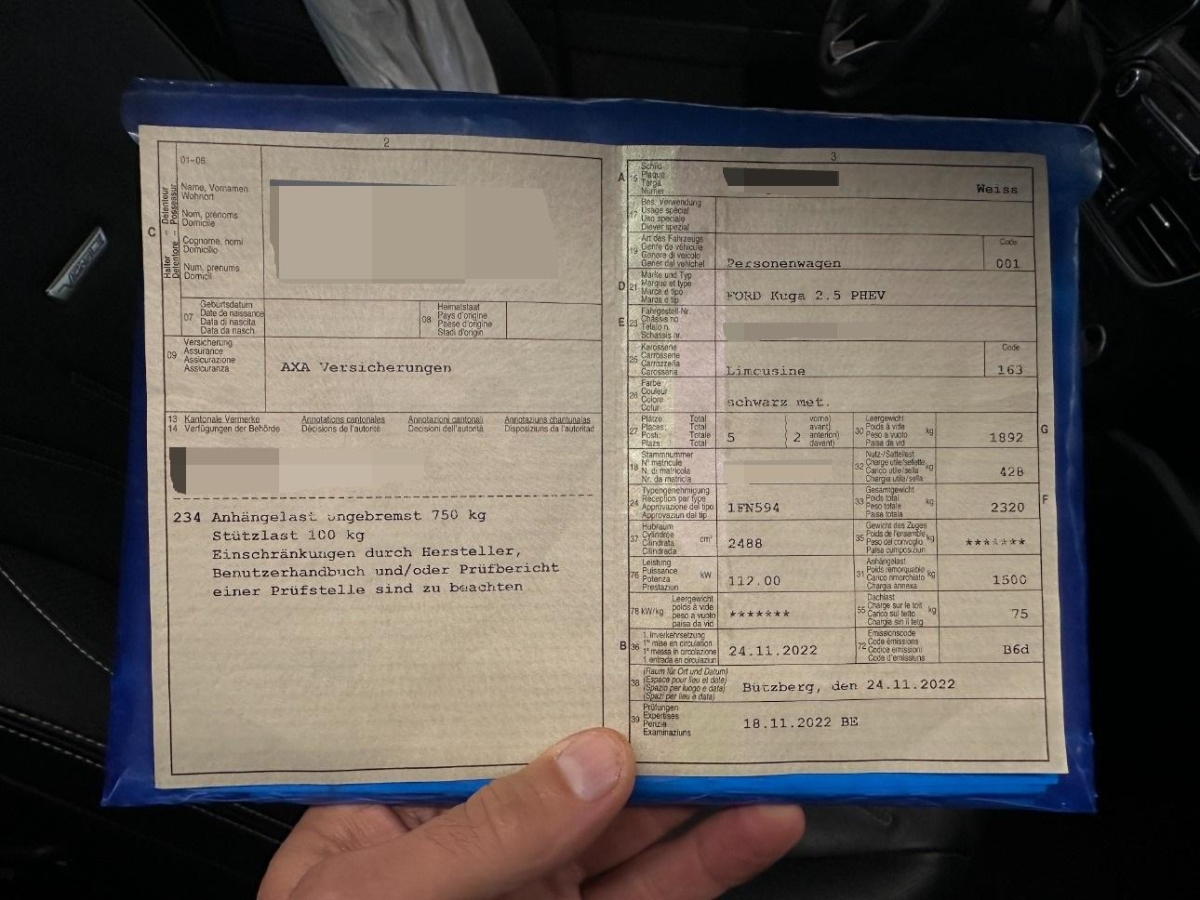 2
01-06
C
Halter – Detenteur
Detentore – Possessur
Name, Vornamen
Wohnort
Nom, prénoms
Domicile
Cognome, nomi
Domicilio
Num, prenums
Domicil
07
Geburtsdatum
Date de naissance
Data di nascita
Data da nasch.
08
Heimatstaat
Pays d'origine
Paese d'origine
Stadi d'origin
09
Versicherung
Assurance
Assicurazione
Assicuranza
AXA Versicherungen
13 Kantonale Vermerke Annotations cantonales Annotazioni cantonali Annotaziuns chantunalas
14 Verfügungen der Behörde Décisions de l'autorité Decisioni dell'autorità Disposiziuns da l'autoritad
234 Anhängelast ungebremst 750 kg
Stützlast 100 kg
Einschränkungen durch Hersteller,
Benutzerhandbuch und/oder Prüfbericht
einer Prüfstelle sind zu beachten
3
A 15
Schild
Plaque
Targa
Numer
Weiss
17
Bes. Verwendung
Usage spécial
Uso speciale
Diever spezial
19
Art des Fahrzeugs
Genre de véhicule
Genere di veicolo
Gener dal vehichel
Personenwagen
Code
001
D 21
Marke und Typ
Marque et type
Marca e tipo
Marca e tip
FORD Kuga 2.5 PHEV
E 23
Fahrgestell-Nr.
Châssis no
Telaio n.
Schassis nr.
25
Karosserie
Carrosserie
Carrozzeria
Carossaria
Limousine
Code
163
26
Farbe
Couleur
Colore
Colur
schwarz met.
27
Plätze Total
Places: Total
Posti: Totale
Plazs: Total
5
2
vorne)
avant)
anteriori)
davant)
30
Leergewicht
Poids à vide
Peso a vuoto
Paisa da vid
kg
1892
G
18
Stammnummer
N° matricule
N. di matricola
Nr. da matricla
32
Nutz-/Sattellast
Charge utile/sellette
Carico utile/sella
Chargia utila/sella
kg
428
24
Typengenehmigung
Réception par type
Approvazione del tipo
Approvaziun dal tip
1FN594
33
Gesamtgewicht
Poids total
Peso totale
Paisa totala
kg
2320
F
37
Hubraum
Cylindrée
Cilindrata
Cilindrada
cm³
2488
35
Gewicht des Zuges
Poids de l'ensemble
Peso del convoglio
Paisa cumposiziun
kg
*******
76
Leistung
Puissance
Potenza
Prestaziun
kW
112.00
31
Anhängelast
Poids remorquable
Carico rimorchiato
Chargia annexa
kg
1500
78 kW/kg
Leergewicht
poids à vide
peso a vuoto
paisa da vid
*******
55
Dachlast
Charge sur le toit
Carico sul tetto
Chargia sin il tetg
kg
75
B 36
1. Inverkehrsetzung
1re mise en circulation
1a messa in circolazione
1. entrada en circulaziun
24.11.2022
72
Emissionscode
Code émissions
Codice emissioni
Code d'emissiuns
B6d
38
(Raum für Ort und Datum)
(Espace pour lieu et date)
(Spazio per luogo e data)
(Spazi per lieu e data)
Bützberg, den 24.11.2022
39
Prüfungen
Expertises
Perizie
Examinaziuns
18.11.2022 BE